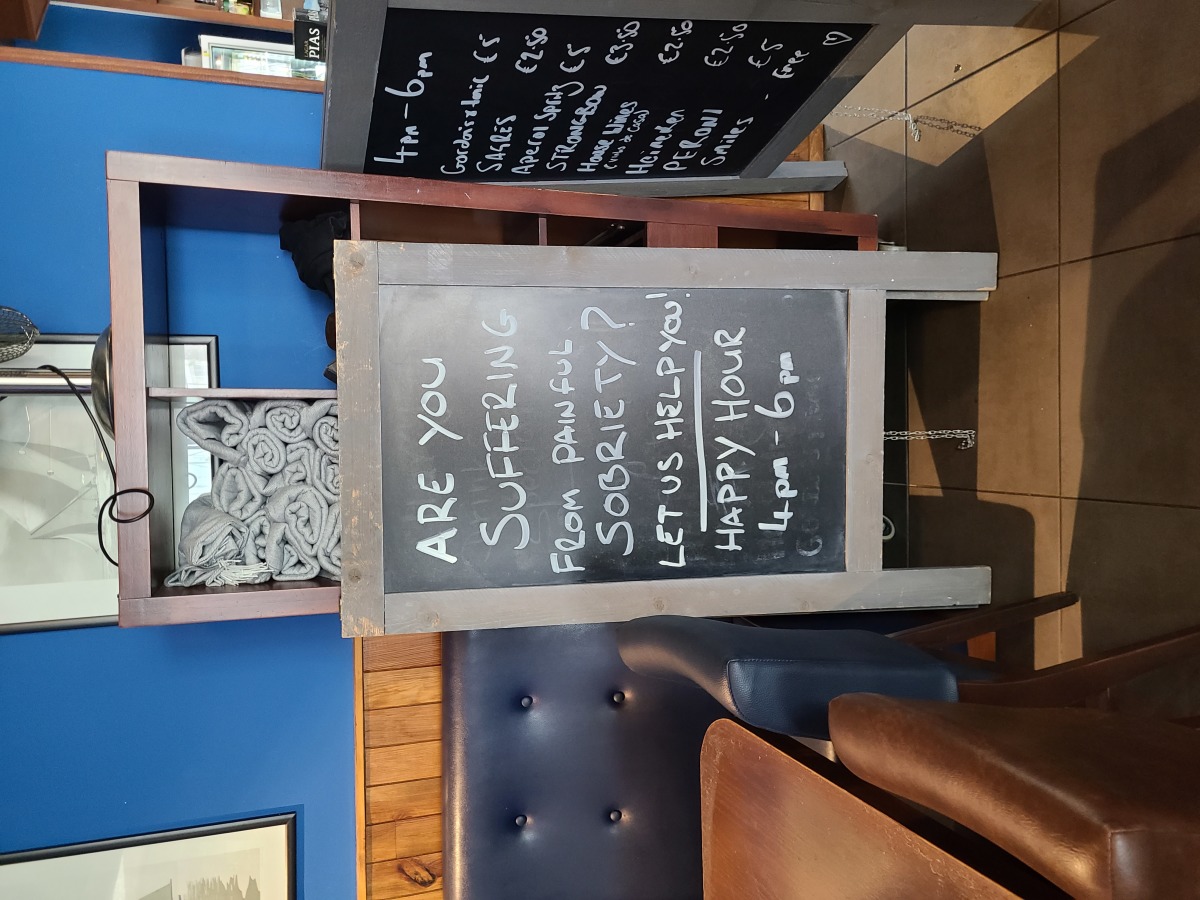 ARE YOU
SUFFERING
FROM PAINFUL
SOBRIETY?
LET US HELP YOU!
HAPPY HOUR
4pm - 6pm
4pm - 6pm
SAGRES €2.50
Aperol Spritz €5
STRONGBOW €5
House Wines €3.50
Heineken €2.50
PERONI €2.50
Smiles - Free
♡
PIAS